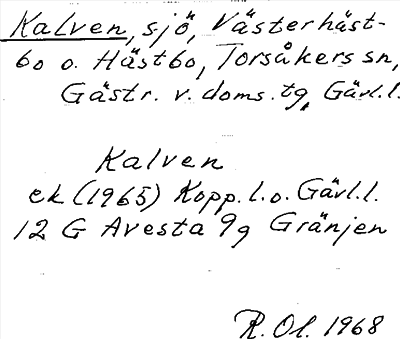 Kalven, sjö, Västerhäst-
bo o. Hästbo, Torsåkers sn,
Gästr. v. doms. tg, Gävl.l.
Kalven
ek (1965) Kopp. l. o. Gävl.l.
12 G Avesta 9g Gränjen
R. Ol. 1968